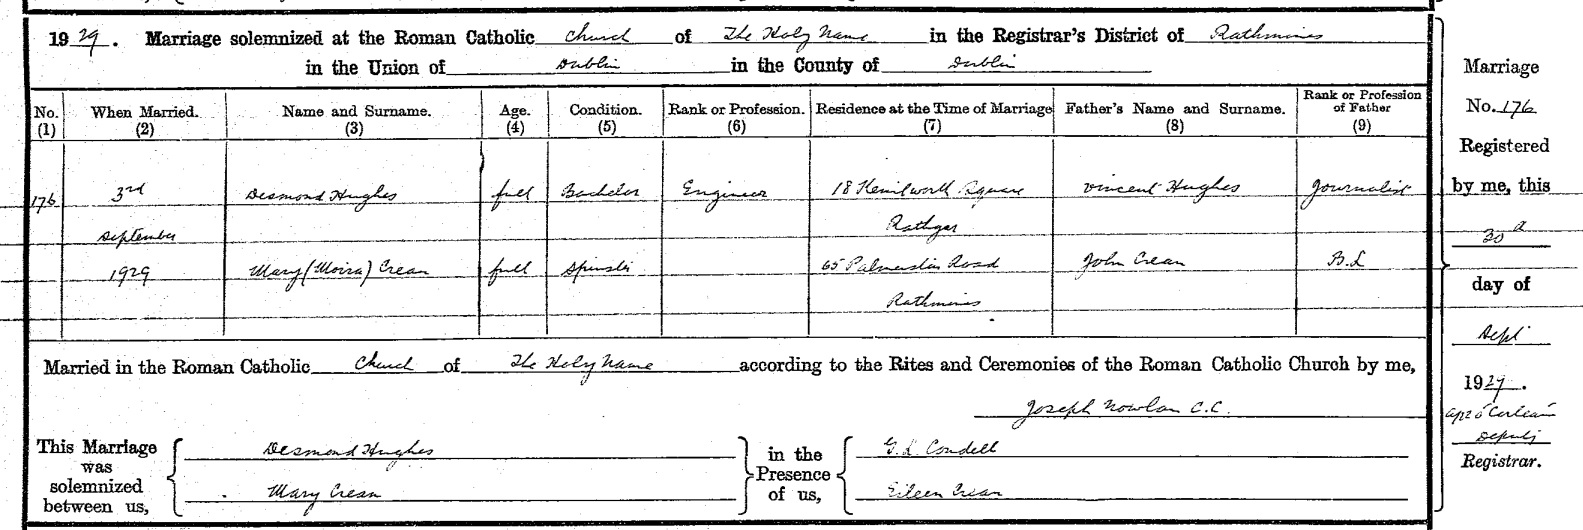 1929. Marriage solemnized at the Roman Catholic Church of The Holy Name in the Registrar's District of Rathmines
in the Union of Dublin in the County of Dublin
No. (1) When Married. (2) Name and Surname. (3) Age. (4) Condition. (5) Rank or Profession. (6) Residence at the Time of Marriage (7) Father's Name and Surname. (8) Rank or Profession of Father (9)
176 3rd Desmond Hughes full Bachelor Engineer 18 Kenilworth Square Vincent Hughes Journalist
September Rathgar
1929 Mary (Moira) Crean full Spinster 65 Palmerston Road John Crean B.L
Rathmines
Married in the Roman Catholic Church of The Holy Name according to the Rites and Ceremonies of the Roman Catholic Church by me,
Joseph Nowlan C.C.
This Marriage was solemnized between us,
Desmond Hughes
Mary Crean
in the Presence of us,
G.L. Condell
Eileen Crean
Marriage
No. 176
Registered
by me, this
30th
day of
Sept
1929.
Deputy
Registrar.